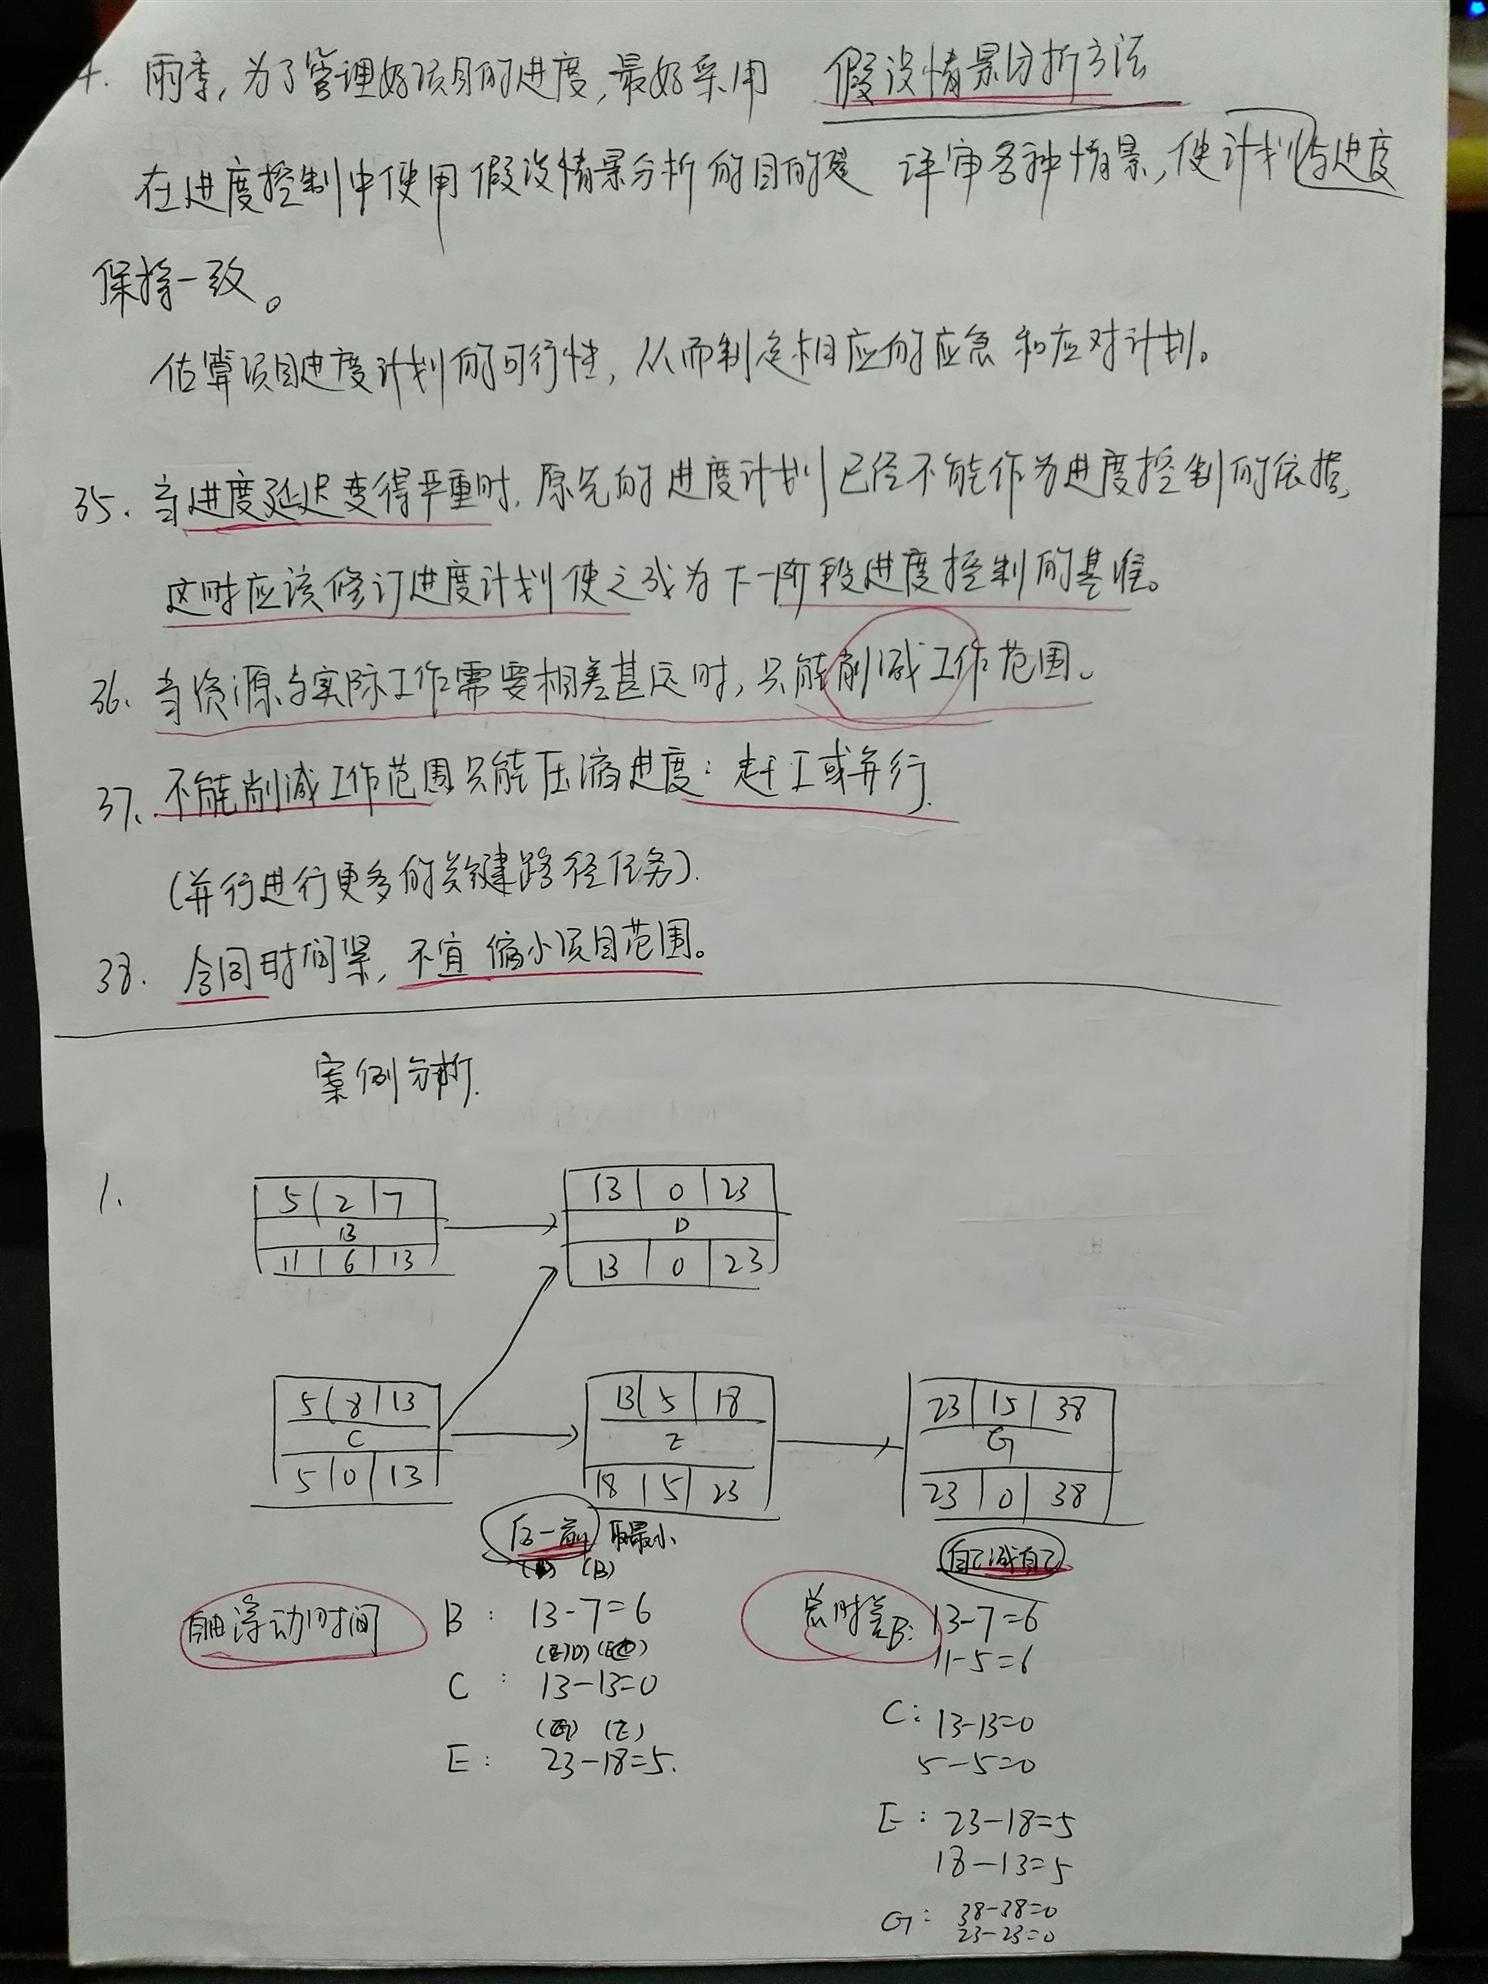 4. 雨季,为了管理好项目的进度,最好采用 假设情景分析方法
在进度控制中使用假设情景分析的目的是 评审各种情景,使计划与进度
保持一致。
估算项目进度计划的可行性,从而制定相应的应急和应对计划。
35. 当进度延迟变得严重时,原先的进度计划已经不能作为进度控制的依据,
这时应该修订进度计划使之成为下一阶段进度控制的基准。
36. 当资源与实际工作需要相差甚远时,只能削减工作范围。
37、不能削减工作范围只能压缩进度:赶工或并行.
(并行进行更多的关键路径任务).
38. 合同时间紧,不宜缩小项目范围。
案例分析.
1.
5 | 2 | 7
B
11 | 6 | 13
13 | 0 | 23
D
13 | 0 | 23
5 | 8 | 13
C
5 | 0 | 13
13 | 5 | 18
E
18 | 5 | 23
23 | 15 | 38
G
23 | 0 | 38
后-前 取最小
(B)
自由浮动时间
B: 13-7=6
C: 13-13=0
(E)
E: 23-18=5.
自己减自己
总时差
B: 13-7=6
11-5=6
C: 13-13=0
5-5=0
E: 23-18=5
18-13=5
G: 38-38=0
23-23=0